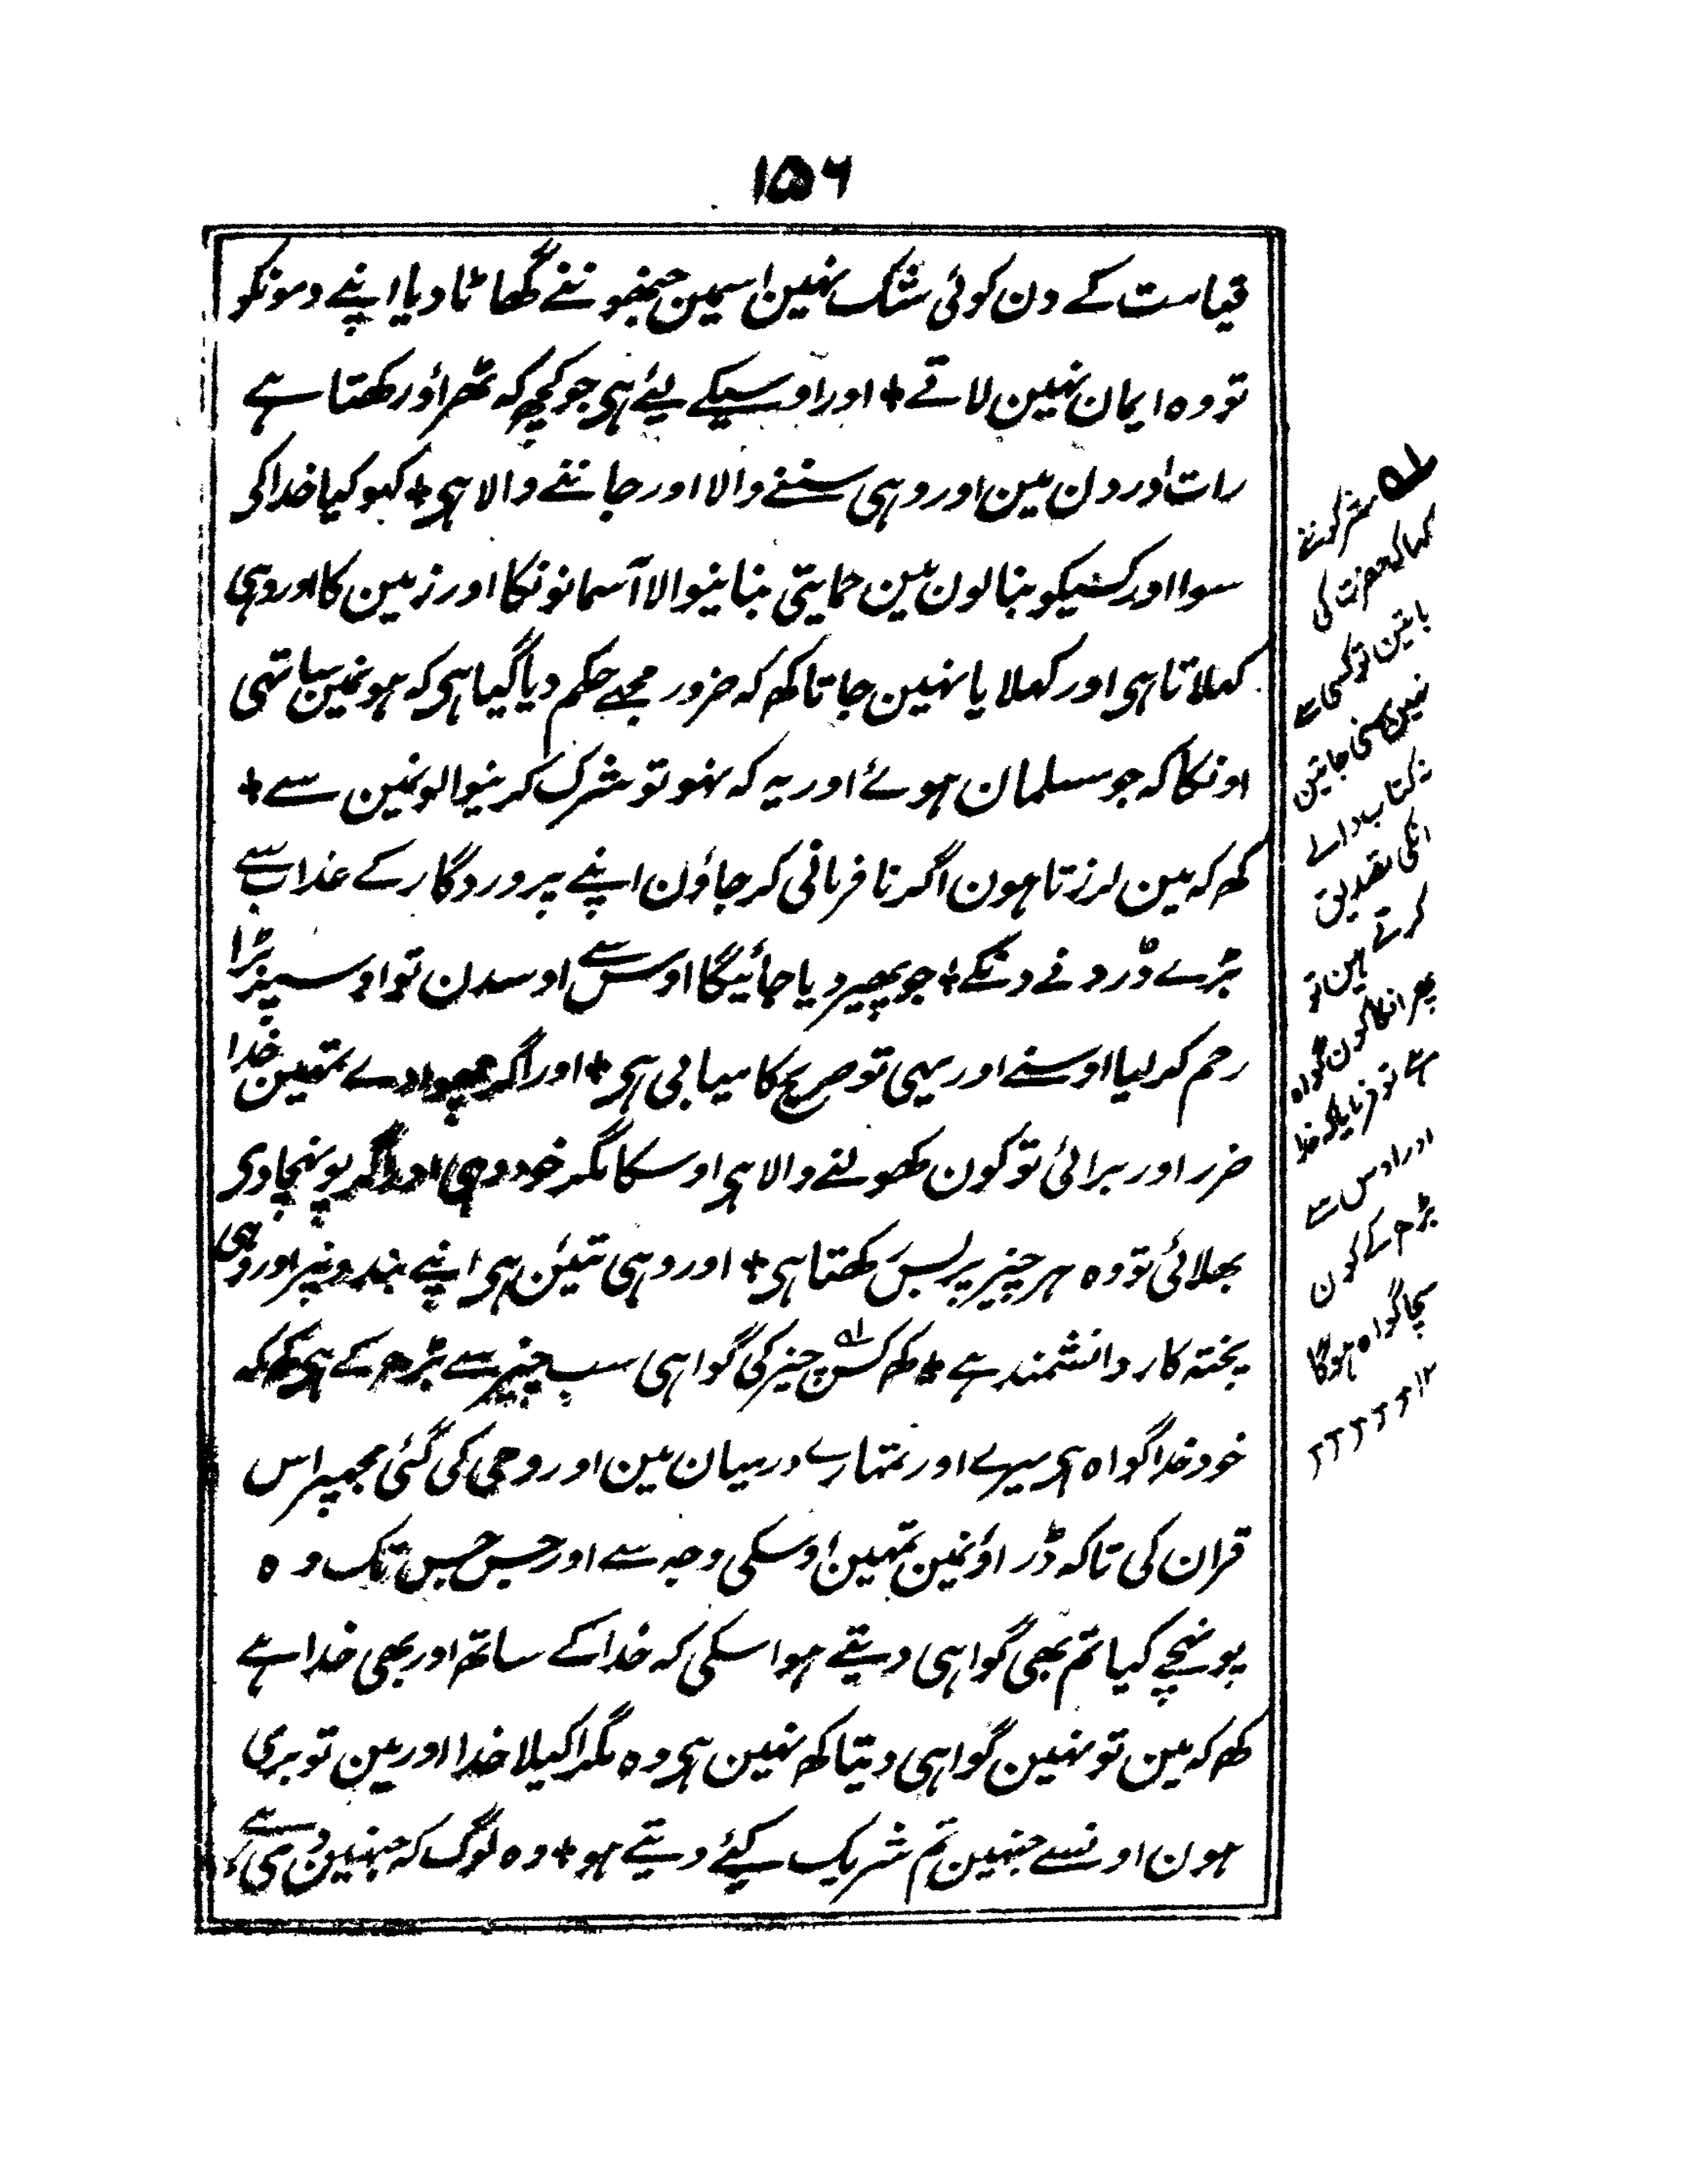 ۱۵۶
قیامت کے دن کوئی شک نہین اسمین جنھو ننے گھاٹا دیا اپنے دمونکو
تو وہ ایمان نہین لاتے + اور اوسیکے لیئے ہی جو کچھ کہ ٹھراؤ رکھتا ہے
رات اور دن مین اور وہی سننے والا اور جاننے والا ہی + کہو کیا خدا کی
سوا اور کسیکو بنالون مین حمایتی بنانیوالا آسمانونکا اور زمین کا اور وہی
کہلاتا ہی اور کہلایا نہین جاتا کھ کہ ضرور مجھے حکم دیا گیا ہی کہ ہونمین ساتھی
اونکا کہ جو مسلمان ہوئے اور یہ کہ نہو تو شرک کرنیوالونمین سے +
کھ کہ مین لرزتا ہون اگر نافرمانی کر جاؤن اپنے پروردگار کے عذاب سے
بڑے ڈرونے دنکے + جو پھیر دیا جائیگا اوس سے اوسدن تو اوسپر بڑا
رحم کر لیا اوسنے اور یہی تو صریح کامیابی ہی + اور اگر چھوادے تمھین خدا
ضرر اور برائی تو کون کھولنے والا ہی اوسکا مگر خود وہی اور اگر پونہچاوی
بھلائی تو وہ ہر چیز پر بس رکھتا ہی + اور وہی تیئن ہی اپنے بندونپر اور وہی
پختہ کار دانشمند ہے + کھ کس چیز کی گواہی سب چیز سے بڑھ کے ہی کھ کہ
خود خدا گواہ ہی میرے اور تمہارے درمیان مین اور وحی کی گئی مجھپر اس
قران کی تاکہ ڈراؤنمین تمہین اوسکی وجہ سے اور جس جس تک وہ
پونہچے کیا تم بھی گواہی دیتے ہو اسکی کہ خدا کے ساتھ اور بھی خدا ہے
کھ کہ مین تو نہین گواہی دیتا کھ نہین ہی وہ مگر اکیلا خدا اور مین تو بری
ہون اونسے جنہین تم شریک کیئے دیتے ہو + وہ لوگ کہ جنہین دی ہے
مشرکونے
کہا کہ حضرت کی
باتین تو کسی سے
نہین سنی جاتین
نہ کتاب والے
انکی تصدیق
کرتے ہین تو
پھر انکا کون گواہ
ہے تو فرمایا کہ خدا
اور اوس سے
بڑھ کے کون
سچا گواہ ہوگا
۱۲